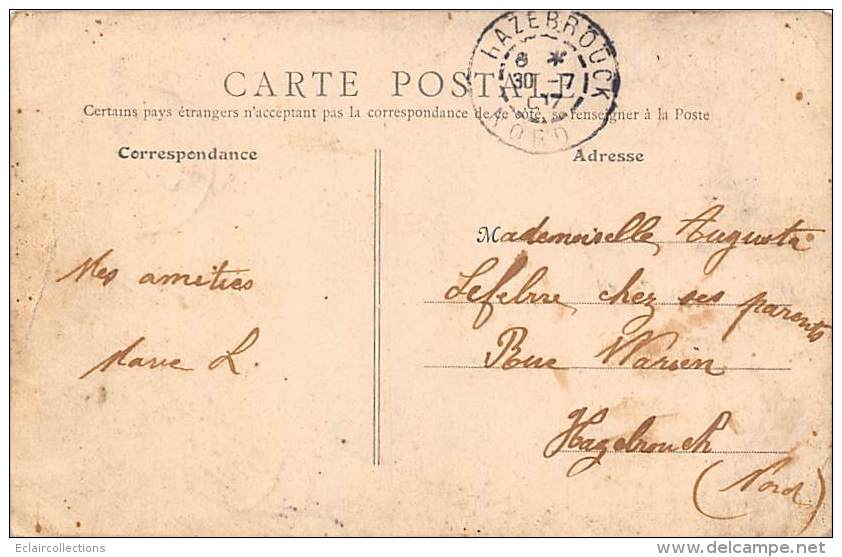 CARTE POSTALE
Certains pays étrangers n'acceptant pas la correspondance de ce côté, se renseigner à la Poste
HAZEBROUCK
30 -7
NORD
Correspondance
Mes amitiés
Marie L.
Adresse
Mademoiselle Augusta
Lefebvre chez ses parents
Rue Warein
Hazebrouck
(Nord)
Eclaircollections
www.delcampe.net